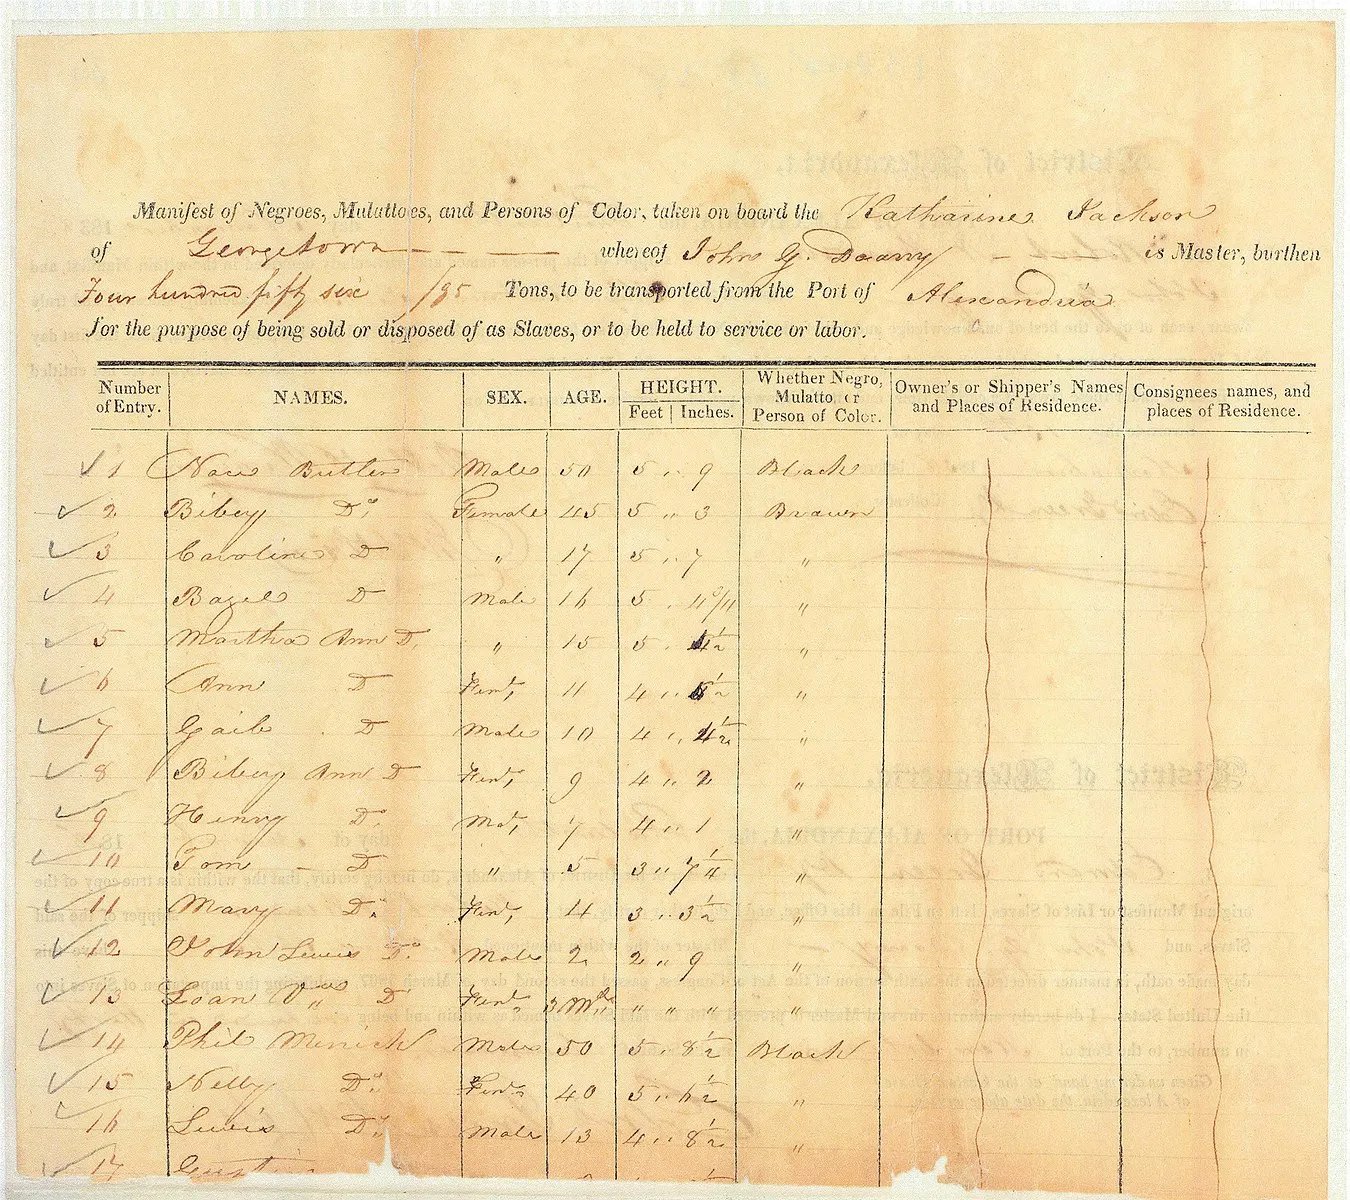 Manifest of Negroes, Mulattoes, and Persons of Color, taken on board the Katharine Jackson
of Georgetown whereof is Master, burthen
Four hundred fifty six /95 Tons, to be transported from the Port of Alexandria
for the purpose of being sold or disposed of as Slaves, or to be held to service or labor.
Number of Entry. NAMES. SEX. AGE. HEIGHT. Feet Inches. Whether Negro, Mulatto, or Person of Color. Owner's or Shipper's Names and Places of Residence. Consignees names, and places of Residence.
1 Nace Butler Male 50 5 " 9 Black
2 Bibey Do. Female 45 5 " 3 Brown
3 Caroline D " 17 5 " 7 "
4 Bazel D Male 16 5 " "
5 Martha Ann D. " 15 5 " 4½ "
6 Ann D Fem, 11 4 " "
7 Gaib D Male 10 4 " 4½ "
8 Bibey Ann D Fem, 9 4 " 2 "
9 Henry D. Mal, 7 4 " 1 "
10 Tom D " 5 3 " 7¼ "
11 Mary D. Fem, 4 3 " 3½ "
12 John Lewis D. Male 2 2 " 9 "
13 D Fem, 3 Mths " " " "
14 Phil Minick Male 50 5 " 8½ Black
15 Nelly D. Fem. 40 5 " 6½ "
16 Lewis D. Male 13 4 " 8½ "
17